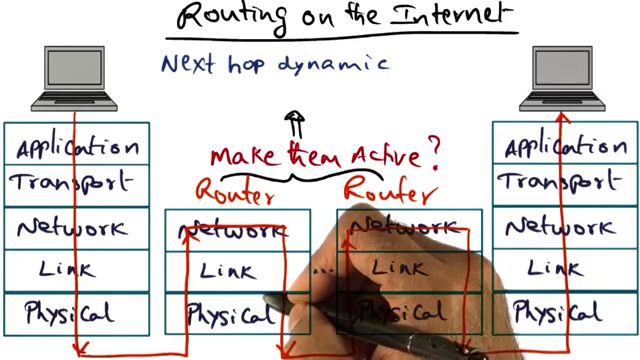 Routing on the Internet
Next hop dynamic
Make them Active?
Router
Router
Application
Transport
Network
Link
Physical
Network
Link
Physical
...
Network
Link
Physical
Application
Transport
Network
Link
Physical